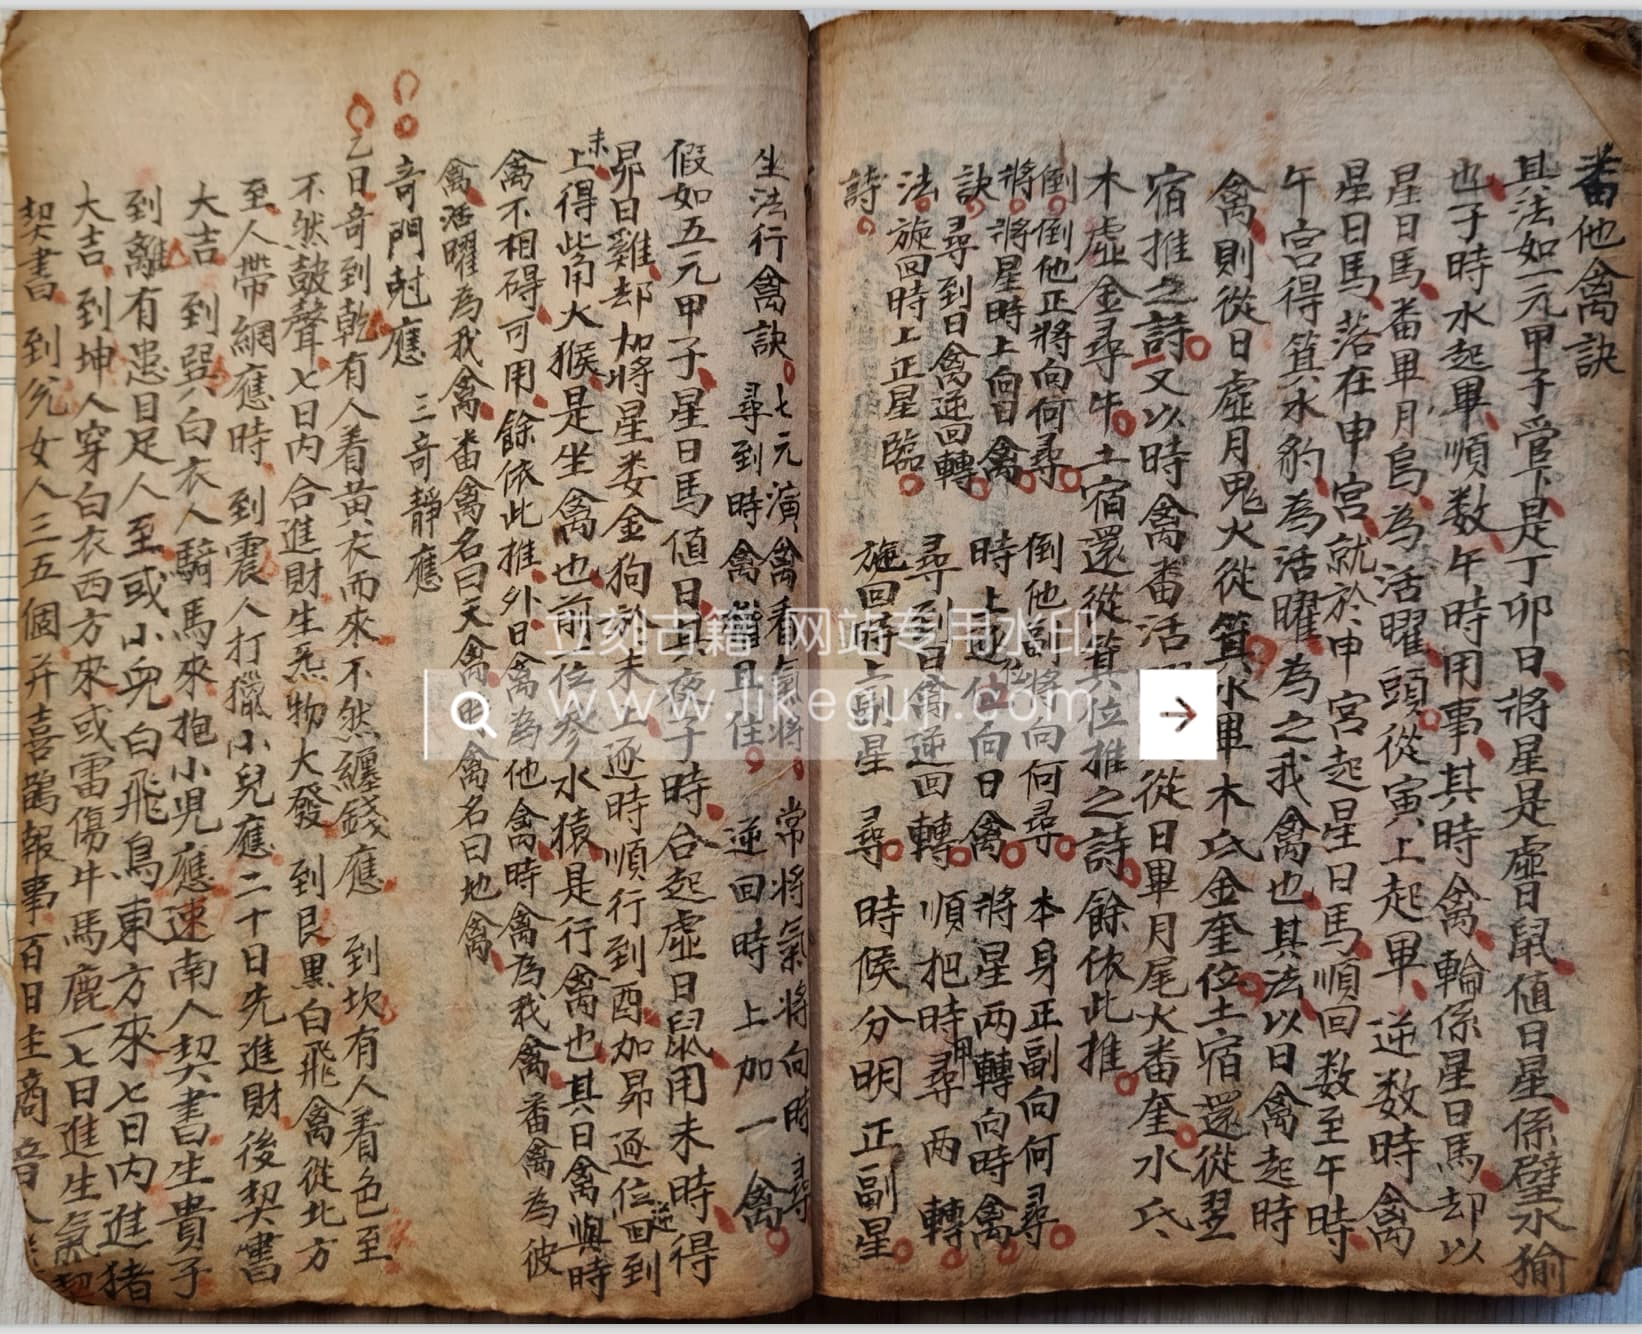 番他禽訣
其法如一元甲子管下是丁卯日將星是虛日鼠值日星係壁水㺄
也子時水起畢順数午時用事其時禽輪係星日馬却以
星日馬番畢月烏為活曜頭從寅上起畢逆数時禽
星日馬落在申宮就於申宮起星日馬順回数至午時
午宮得箕水豹為活曜為之我禽也其法以日禽起時
禽則從日虛月鬼火從箕水畢木氐金奎位土宿還從翌
宿推之詩又以時禽番活 從日畢月尾火番奎水氐
木虛金尋牛土宿還從箕位推之詩餘依此推
倒倒他正將向何尋 倒他副將向何尋 本身正副向何尋
將將星時上向日禽 時上逆位向日禽 將星两轉向時禽
訣尋到日禽逆回轉 尋到日禽逆回轉 順把時尋两轉
法旋回時上正星臨 旋回時上副星尋 時候分明正副星
詩
坐法行禽訣 七元演禽看氣將 常將氣將向時尋
尋到時禽 且住 逆回時上加一禽
假如五元甲子星日馬值日其夜子時合起虛日鼠用未時得
昴日雞却加將星娄金狗於未上逐時順行到酉加昴逐位逆回到
未上得此角大猴是坐禽也前一位參水猿是行禽也其日禽與時
禽不相碍可用餘依此推外日禽為他禽時禽為我禽番禽為彼
禽活曜為我禽番禽名曰天禽 禽名曰地禽
奇門尅應 三奇靜應
乙日奇到乾有人着黃衣而來不然纏錢應 到坎有人着色至
不然皷聲七日内合進財生炁物大發 到艮黑白飛禽從北方
至人帶網應時 到震人打獵小兒應二十日先進財後契書
大吉 到巽白衣人騎馬來抱小児應速南人契書生貴子
到離有患目足人至或小兒白飛鳥東方來七日内進猪
大吉 到坤人穿白衣西方來或雷傷牛馬鹿一七日進生氣契
契書 到兊女人三五個并喜鵲報事百日主商音人
立刻古籍 网站专用水印
www.likeguji.com